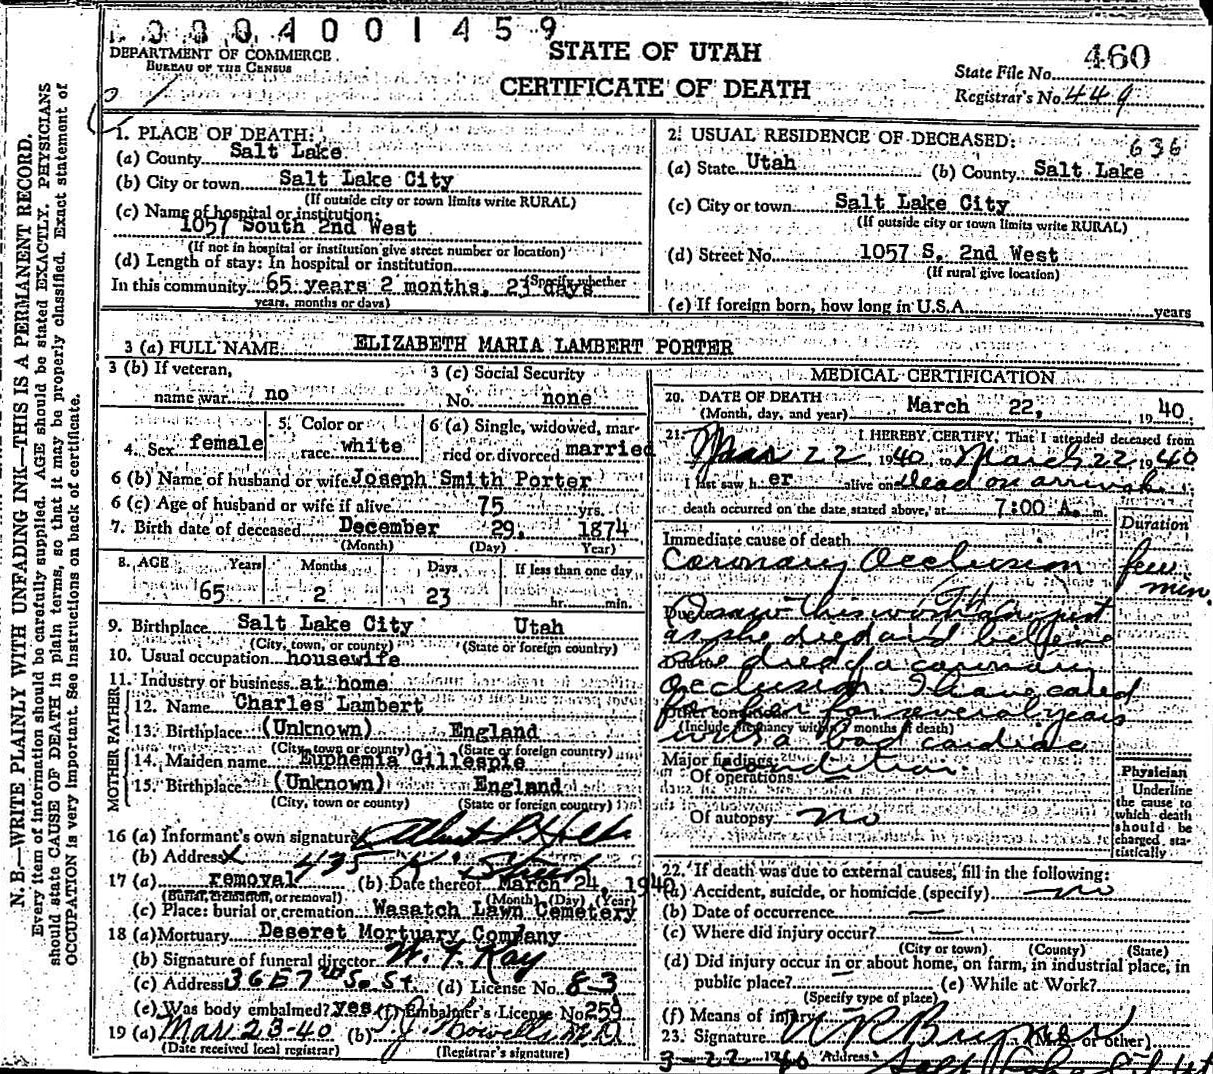 0 4 0 0 1 4 5 9
DEPARTMENT OF COMMERCE
BUREAU OF THE CENSUS
STATE OF UTAH
CERTIFICATE OF DEATH
State File No. 460
Registrar's No. 449
N. B.—WRITE PLAINLY WITH UNFADING INK—THIS IS A PERMANENT RECORD.
Every item of information should be carefully supplied. AGE should be stated EXACTLY. PHYSICIANS
should state CAUSE OF DEATH in plain terms, so that it may be properly classified. Exact statement of
OCCUPATION is very important. See instructions on back of certificate.
1. PLACE OF DEATH:
(a) County Salt Lake
(b) City or town Salt Lake City
(If outside city or town limits write RURAL)
(c) Name of hospital or institution:
1057 South 2nd West
(If not in hospital or institution give street number or location)
(d) Length of stay: In hospital or institution
In this community 65 years 2 months, 23 days (Specify whether
years, months or days)
2. USUAL RESIDENCE OF DECEASED: 636
(a) State Utah (b) County Salt Lake
(c) City or town Salt Lake City
(If outside city or town limits write RURAL)
(d) Street No. 1057 S. 2nd West
(If rural give location)
(e) If foreign born, how long in U.S.A. years
3 (a) FULL NAME ELIZABETH MARIA LAMBERT PORTER
3 (b) If veteran, 3 (c) Social Security
name war no No. none
4. Sex female 5. Color or race white 6 (a) Single, widowed, married or divorced married
6 (b) Name of husband or wife Joseph Smith Porter
6 (c) Age of husband or wife if alive 75 yrs.
7. Birth date of deceased December 29, 1874
(Month) (Day) Year)
8. AGE Years Months Days If less than one day
65 2 23 hr. min.
9. Birthplace Salt Lake City Utah
(City, town, or county) (State or foreign country)
10. Usual occupation housewife
11. Industry or business at home
FATHER
12. Name Charles Lambert
13. Birthplace (Unknown) England
(City, town or county) (State or foreign country)
MOTHER
14. Maiden name Euphemia Gillespie
15. Birthplace (Unknown) England
(City, town or county) (State or foreign country)
16 (a) Informant's own signature
(b) Address X 435 K Street
17 (a) removal (b) Date thereof March 24, 1940
(Burial, cremation, or removal) (Month) (Day) (Year)
(c) Place: burial or cremation Wasatch Lawn Cemetery
18 (a) Mortuary Deseret Mortuary Company
(b) Signature of funeral director W. Y. Kay
(c) Address 36 E 7th So. St. (d) License No. 83
(e) Was body embalmed? yes (f) Embalmer's License No 259
19 (a) Mar 23-40 (b) T J Howells M.D.
(Date received local registrar) (Registrar's signature)
MEDICAL CERTIFICATION
20. DATE OF DEATH
(Month, day, and year) March 22, 1940.
21. I HEREBY CERTIFY, That I attended deceased from
Mar 22 1940, to March 22 1940
I last saw her alive on Dead on arrival
death occurred on the date stated above, at 7:00 A. m.
Duration
Immediate cause of death
Coronary Occlusion few min.
Due to
I saw this woman just
as she died and believe
Due to
she died of a coronary
occlusion. I have cared
Other conditions
for her for several years
(Include pregnancy within 3 months of death)
with a bad cardiac
condition
Major findings:
Of operations
Of autopsy no
Physician
Underline
the cause to
which death
should be
charged sta-
tistically
22. If death was due to external causes, fill in the following:
(a) Accident, suicide, or homicide (specify) no
(b) Date of occurrence —
(c) Where did injury occur? —
(City or town) (County) (State)
(d) Did injury occur in or about home, on farm, in industrial place, in
public place? — (e) While at Work?
(Specify type of place)
(f) Means of injury
23. Signature (M.D. or other)
3-22 1940 Address Salt Lake City Ut